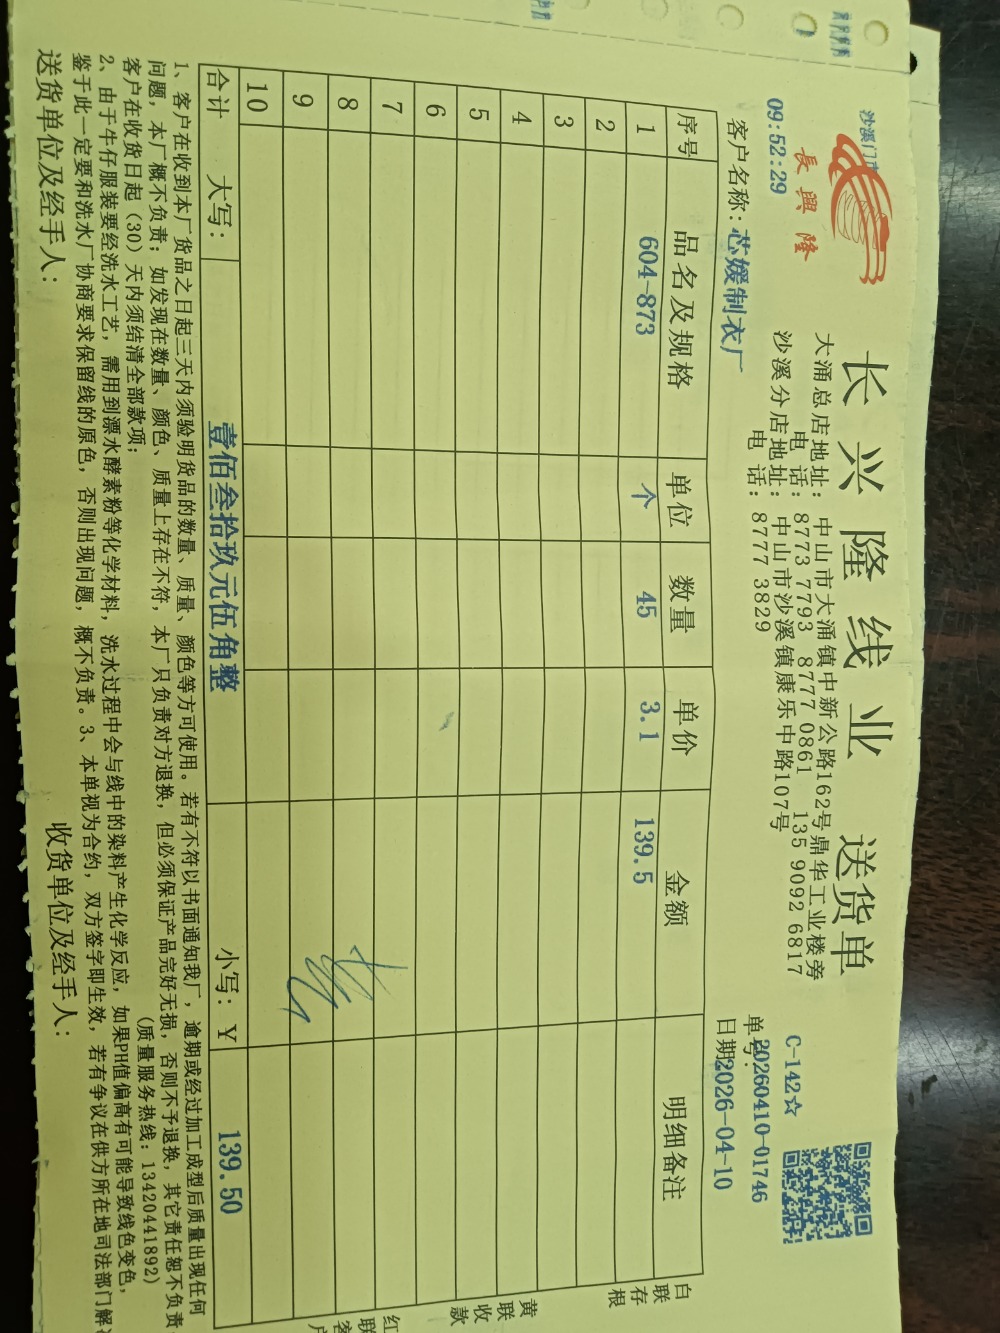 沙溪门市
長興隆
09:52:29
长兴隆线业 送货单
大涌总店地址：中山市大涌镇中新公路162号鼎华工业楼旁
电 话：8773 7793 8777 0861 135 9092 6817
沙溪分店地址：中山市沙溪镇康乐中路107号
电 话：8777 3829
C-142☆
单号：20260410-01746
客户名称：芯媛制衣厂
日期2026-04-10
序号 品名及规格 单位 数量 单价 金额 明细备注
1 604-873 个 45 3.1 139.5
2
3
4
5
6
7
8
9
10
合计 大写： 壹佰叁拾玖元伍角整 小写：￥ 139.50
1、客户在收到本厂货品之日起三天内须验明货品的数量、质量、颜色等方可使用。若有不符以书面通知我厂，逾期或经过加工成型后质量出现任何
问题，本厂概不负责；如发现在数量、颜色、质量上存在不符，本厂只负责对方退换，但必须保证产品完好无损，否则不予退换，其它责任恕不负责
客户在收货日起（30）天内须结清全部款项；
(质量服务热线：13420441892)
2、由于牛仔服装要经洗水工艺，需用到漂水酵素粉等化学材料，洗水过程中会与线中的染料产生化学反应，如果PH值偏高有可能导致线色变色，
鉴于此一定要和洗水厂协商要求保留线的原色，否则出现问题，概不负责。3、本单视为合约，双方签字即生效，若有争议在供方所在地司法部门解
送货单位及经手人：
收货单位及经手人：
白联存根
黄联收款
红联客户